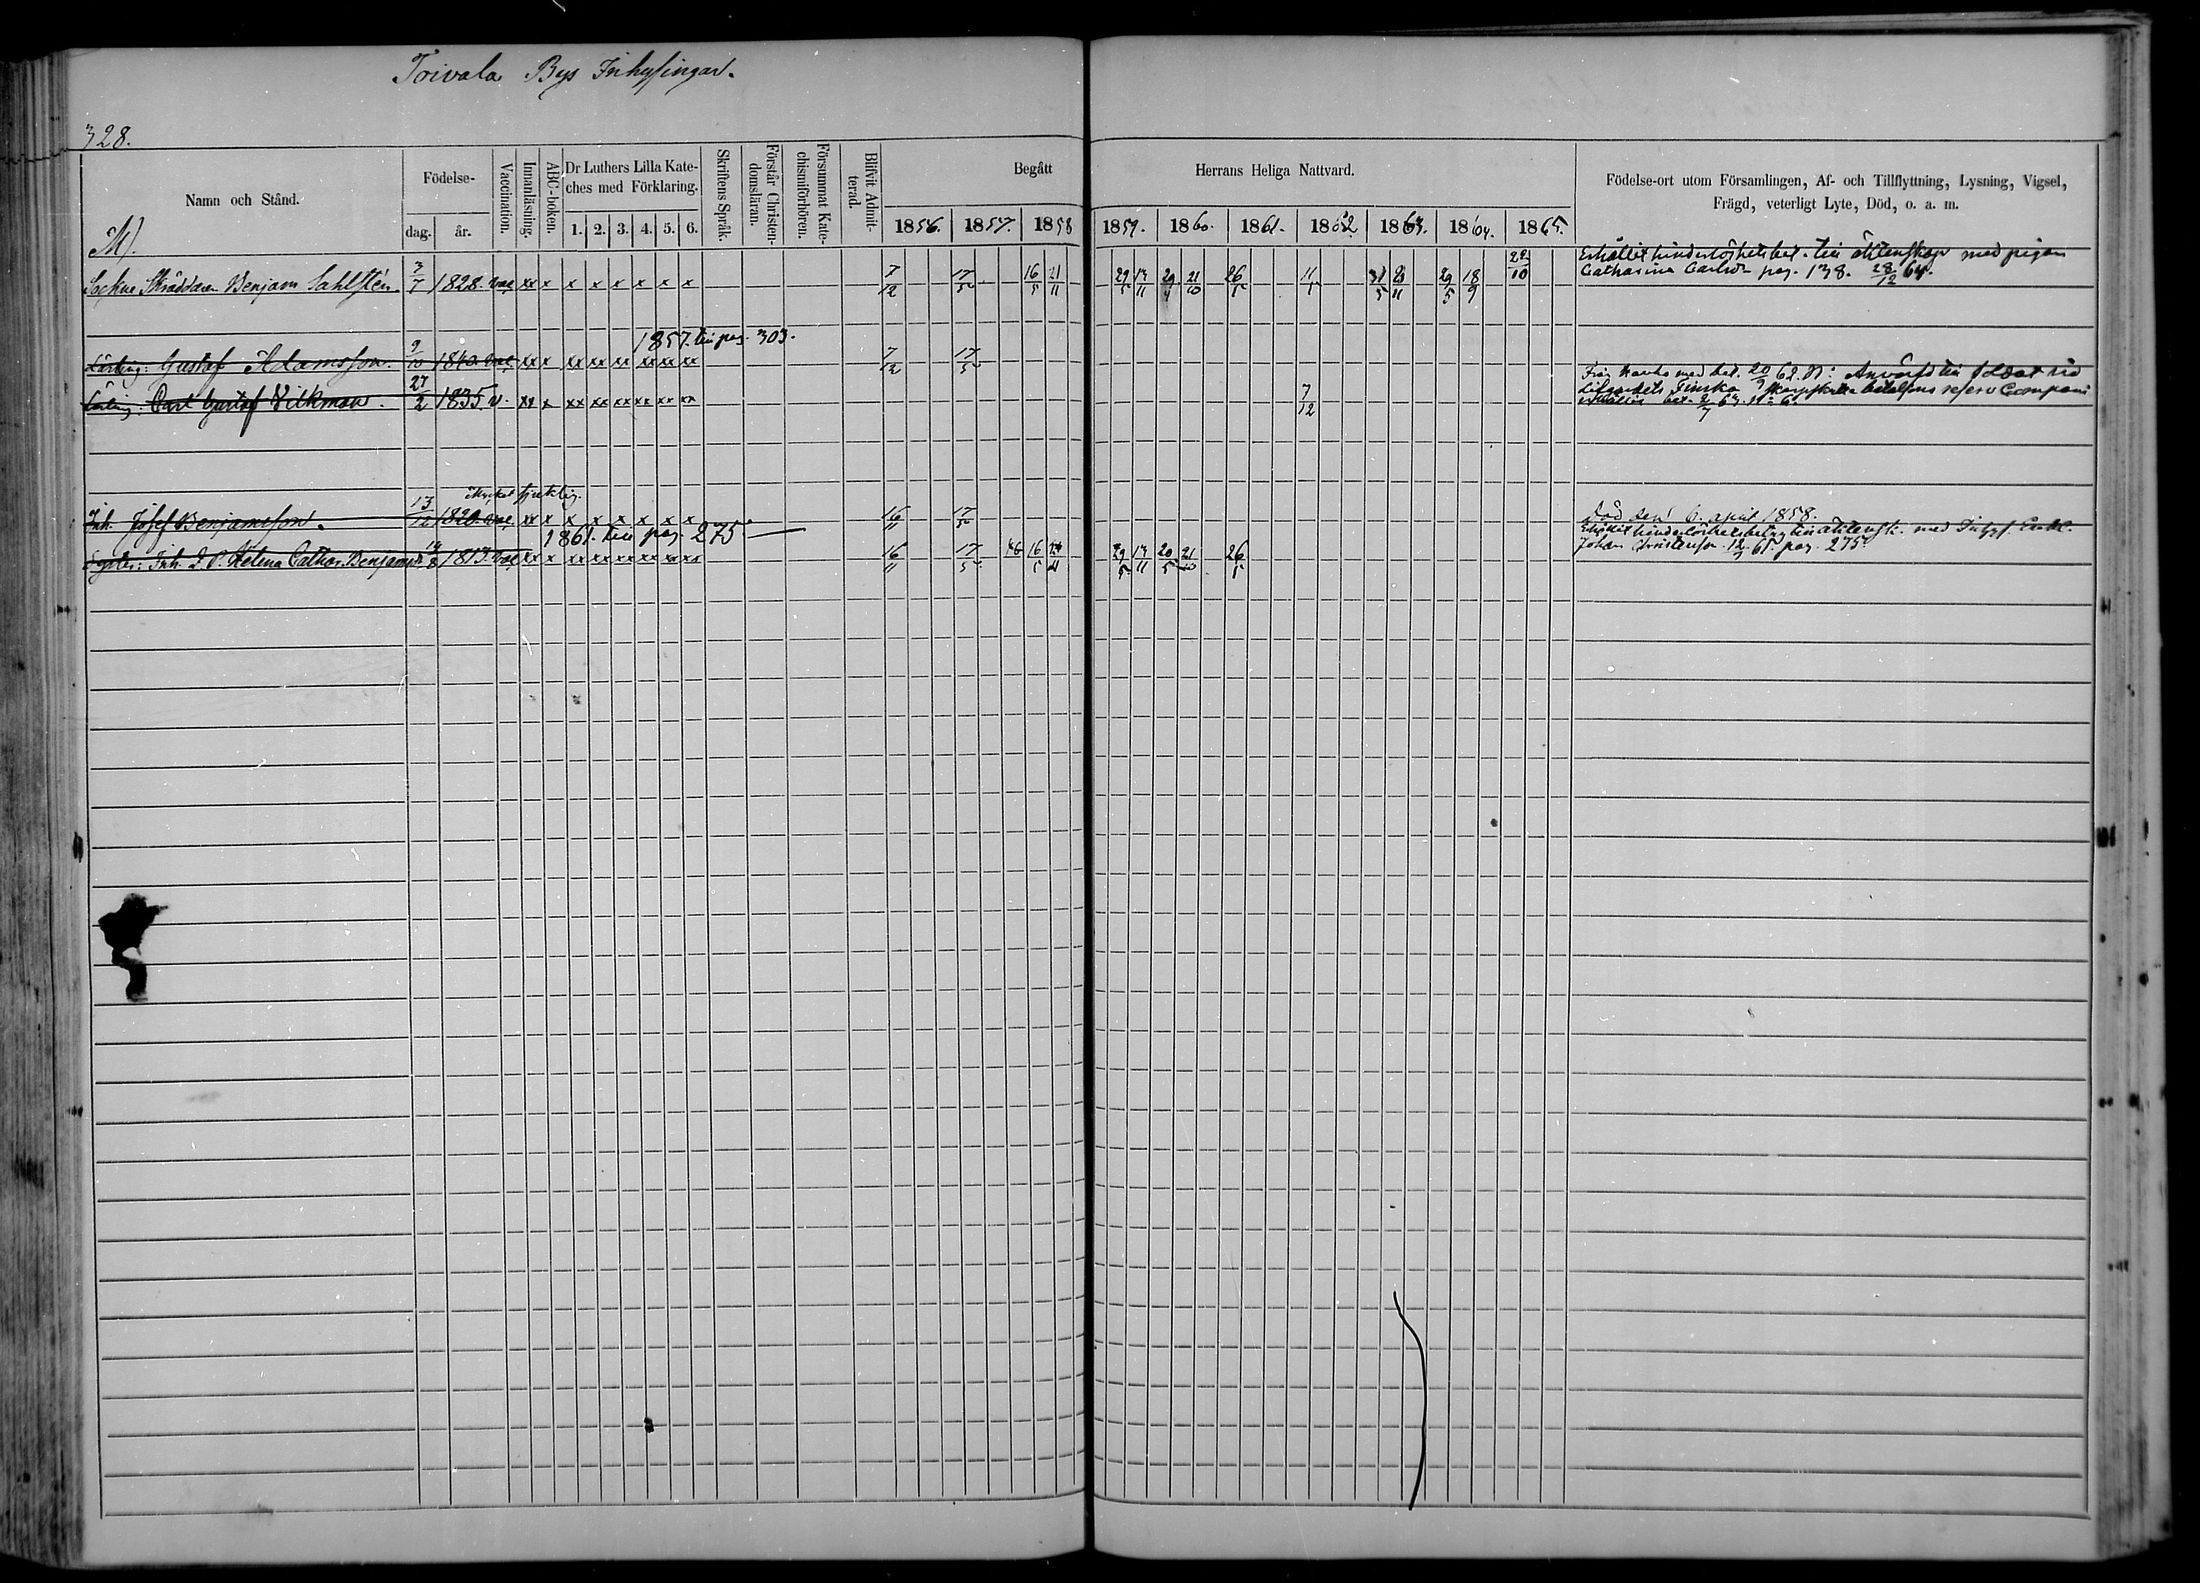 Toivala Bys Inhysingar.
328.
Namn och Stånd.
Födelse-
dag. år.
Vaccination.
Innanläsning.
ABC-boken.
Dr Luthers Lilla Kate-
ches med Förklaring.
1. 2. 3. 4. 5. 6.
Skriftens Språk.
Förstår Christen-
domsläran.
Försummat Kate-
chismiförhören.
Blifvit Admit-
terad.
Begått Herrans Heliga Nattvard.
1856. 1857. 1858 1859. 1860. 1861. 1862 1863. 1864. 1865.
Födelse-ort utom Församlingen, Af- och Tillflyttning, Lysning, Vigsel,
Frägd, veterligt Lyte, Död, o. a. m.
Erhållit hinderlöshetsbet. till äktenskap med pigan
Catharina Carlsdr pag. 138. 28/12 64.
Sockne Skräddare Benjam Sahlstén 3/7 1828. vac xx x x x x x x x 7/12 17/5 16/5 21/11 29/5 13/11 29/4 21/10 26/5 11/5 31/5 29/5 18/9 22/10
1857. till pag. 303.
Lärling: Gustaf Adamsson. 9/10 1840. vac xx x xx xx xx xx xx xx 7/12 17/5
Lärling: Carl Gustaf Vilkman. 27/2 1835. v. xx x xx xx xx xx xx xx 7/12
Från med bet. 20/9 62. Anvärfd till Soldat vid
Lifgardets Finska Skarpskytte bataljons reserv Compani
bet. 2/7 63. N:o 6.
Mycket sjuklig.
Inh. Josef Benjamsson. 13/12 1820. vac xx x x x x x x x 16/11 17/5
Död den 6. april 1858.
1861. till pag. 275.
Syster: Inh. D. P. Helena Cathar. Benjamsdr 14/8 1813. vac xx x xx xx xx xx xx xx 16/11 17/5 16/5 21/11 29/5 13/11 20/5 21/10 26/5
Erhållit hinderlöshetsbetyg till äktensk. med Enkl.
Johan Christersson 12/7 65. pag. 275.